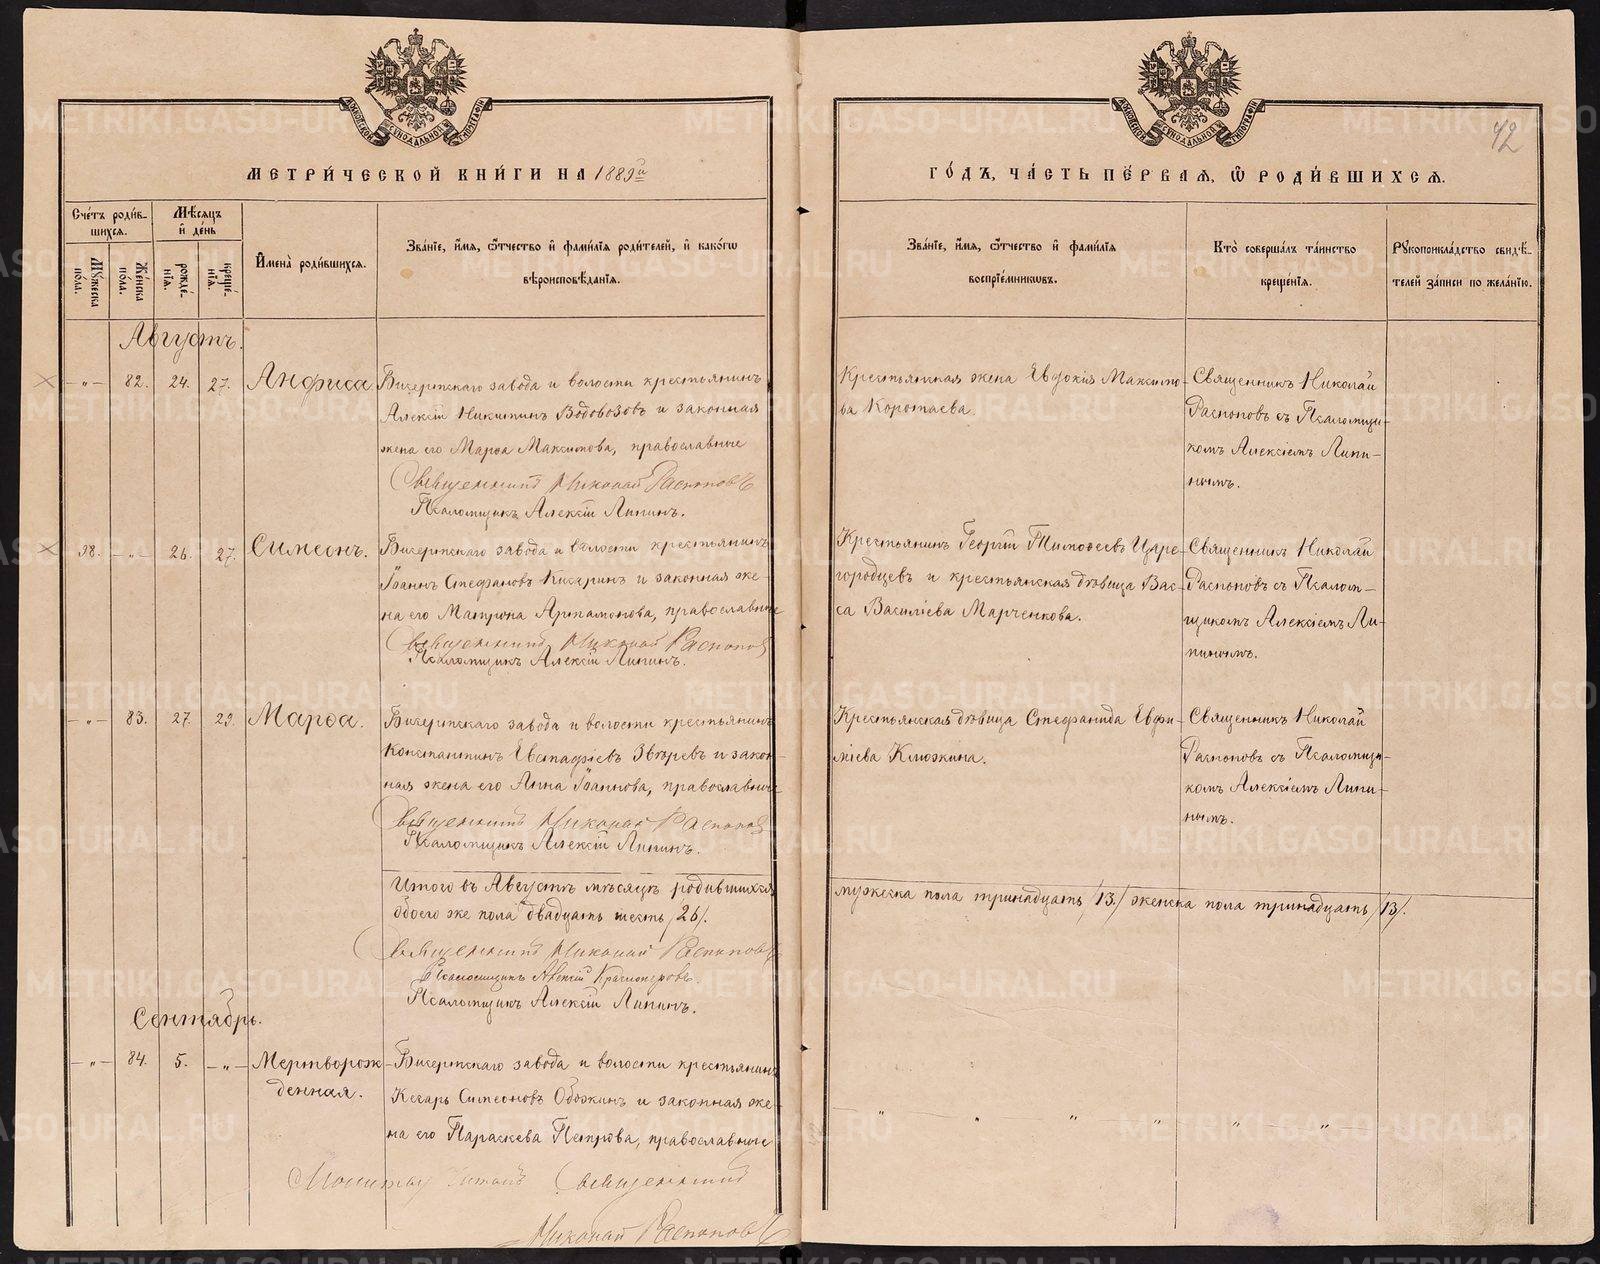 МЕТРИ́ЧЕСКОЙ КНИ́ГИ НА 1889й
Сче́тъ роди́в-
шихся.
Мѣ́сяцъ
и де́нь
Му́жеска
пола.
Же́нска
пола.
рожде́-
нїя.
креще́-
нїя.
И҆мена̀ роди́вшихся.
Зва́нїе, и҆́мя, ѻ҆́тчество и҆ фами́лїя роди́телей, и҆ како́гѡ
вѣроисповѣ́данїя.
Августъ.
— „ —
82.
24.
27.
Анфиса
Бисертскаго завода и волости крестьянинъ
Алексій Никитинъ Водовозовъ и законная
жена его Марѳа Максимова, православные
Священникъ Николай Распоповъ
Псаломщикъ Алексій Липинъ.
98.
— „ —
26.
27.
Симеонъ.
Бисертскаго завода и волости крестьянинъ
Іоаннъ Стефановъ Кисаринъ и законная же-
на его Матрона Артамонова, православные
Священникъ Николай Распоповъ
Псаломщикъ Алексій Липинъ.
— „ —
83.
27.
29.
Марѳа.
Бисертскаго завода и волости крестьянинъ
Константинъ Евстафіевъ Звѣревъ и закон-
ная жена его Анна Іоаннова, православные
Священникъ Николай Распоповъ
Псаломщикъ Алексій Липинъ.
Итого въ Августѣ мѣсяцѣ родившихся
обоего же пола двадцать шесть /26/.
Священникъ Николай Распоповъ
Псаломщикъ Алексій Липинъ.
Сентябрь.
— „ —
84.
5.
— „ —
Мертворож-
денная.
Бисертскаго завода и волости крестьянинъ
Кесарь Симеоновъ Обожинъ и законная же-
на его Параскева Петрова, православные
Молитву читалъ Священникъ
Николай Распоповъ
42
ГО́ДЪ, ЧА́СТЬ ПЕ́РВАЯ, Ѽ РОДИ́ВШИХСЯ.
Зва́нїе, и҆́мя, ѻ҆́тчество и҆ фами́лїя
воспрїе́мникѡвъ.
Кто̀ соверша́лъ та́инство
креще́нїя.
Рꙋкоприкла́дство свидѣ́-
телей за́писи по жела́нїю.
Крестьянская жена Евдокія Максимо-
ва Коротаева.
Священникъ Николай
Распоповъ съ Псаломщи-
комъ Алексіемъ Липи-
нымъ.
Крестьянинъ Георгій Тимоѳеевъ Царе-
городцевъ и крестьянская дѣвица Вас-
са Василіева Марченкова.
Священникъ Николай
Распоповъ съ Псалом-
щикомъ Алексіемъ Ли-
пинымъ.
Крестьянская дѣвица Стефанида Евфи-
міева Клюкина.
Священникъ Николай
Распоповъ съ Псаломщи-
комъ Алексіемъ Липи-
нымъ.
мужеска пола тринадцать /13./ женска пола тринадцать /13/.